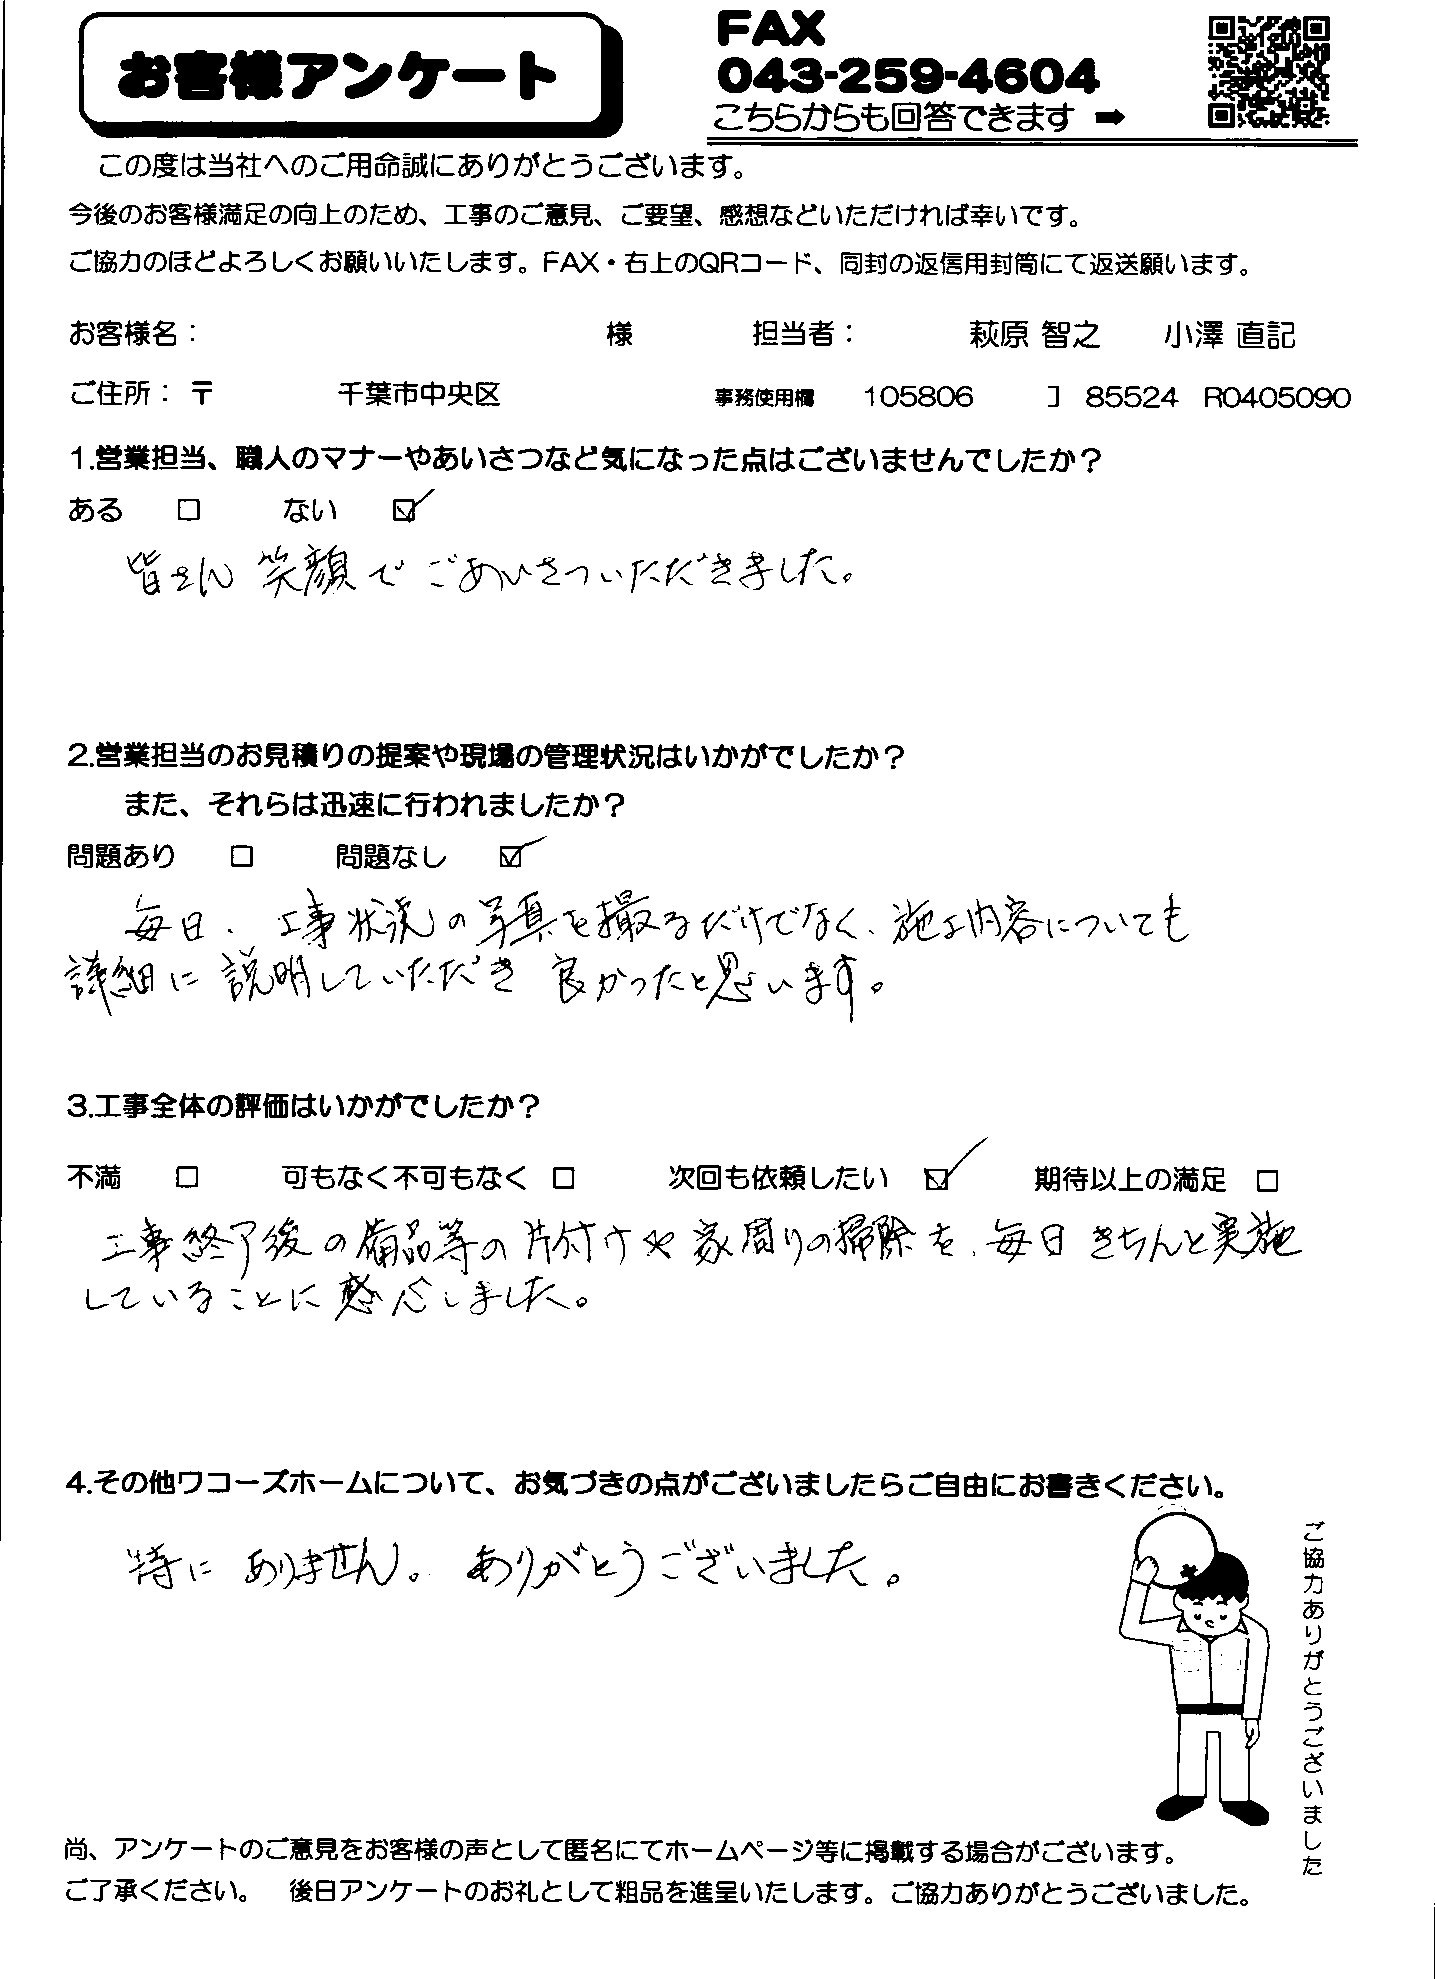 お客様アンケート
FAX
043-259-4604
こちらからも回答できます ➡
この度は当社へのご用命誠にありがとうございます。
今後のお客様満足の向上のため、工事のご意見、ご要望、感想などいただければ幸いです。
ご協力のほどよろしくお願いいたします。FAX・右上のQRコード、同封の返信用封筒にて返送願います。
お客様名： 様 担当者： 萩原 智之 小澤 直記
ご住所：〒 千葉市中央区 事務使用欄 105806 ] 85524 R0405090
1.営業担当、職人のマナーやあいさつなど気になった点はございませんでしたか？
ある □ ない ☑
皆さん 笑顔で ごあいさついただきました。
2.営業担当のお見積りの提案や現場の管理状況はいかがでしたか？
また、それらは迅速に行われましたか？
問題あり □ 問題なし ☑
毎日、工事状況の写真を撮るだけでなく、施工内容についても
詳細に説明していただき 良かったと思います。
3.工事全体の評価はいかがでしたか？
不満 □ 可もなく不可もなく □ 次回も依頼したい ☑ 期待以上の満足 □
工事終了後の備品等の片付けや家周りの掃除を、毎日きちんと実施
していることに感心しました。
4.その他ワコーズホームについて、お気づきの点がございましたらご自由にお書きください。
特に ありません。ありがとうございました。
ご協力ありがとうございました
尚、アンケートのご意見をお客様の声として匿名にてホームページ等に掲載する場合がございます。
ご了承ください。 後日アンケートのお礼として粗品を進呈いたします。ご協力ありがとうございました。